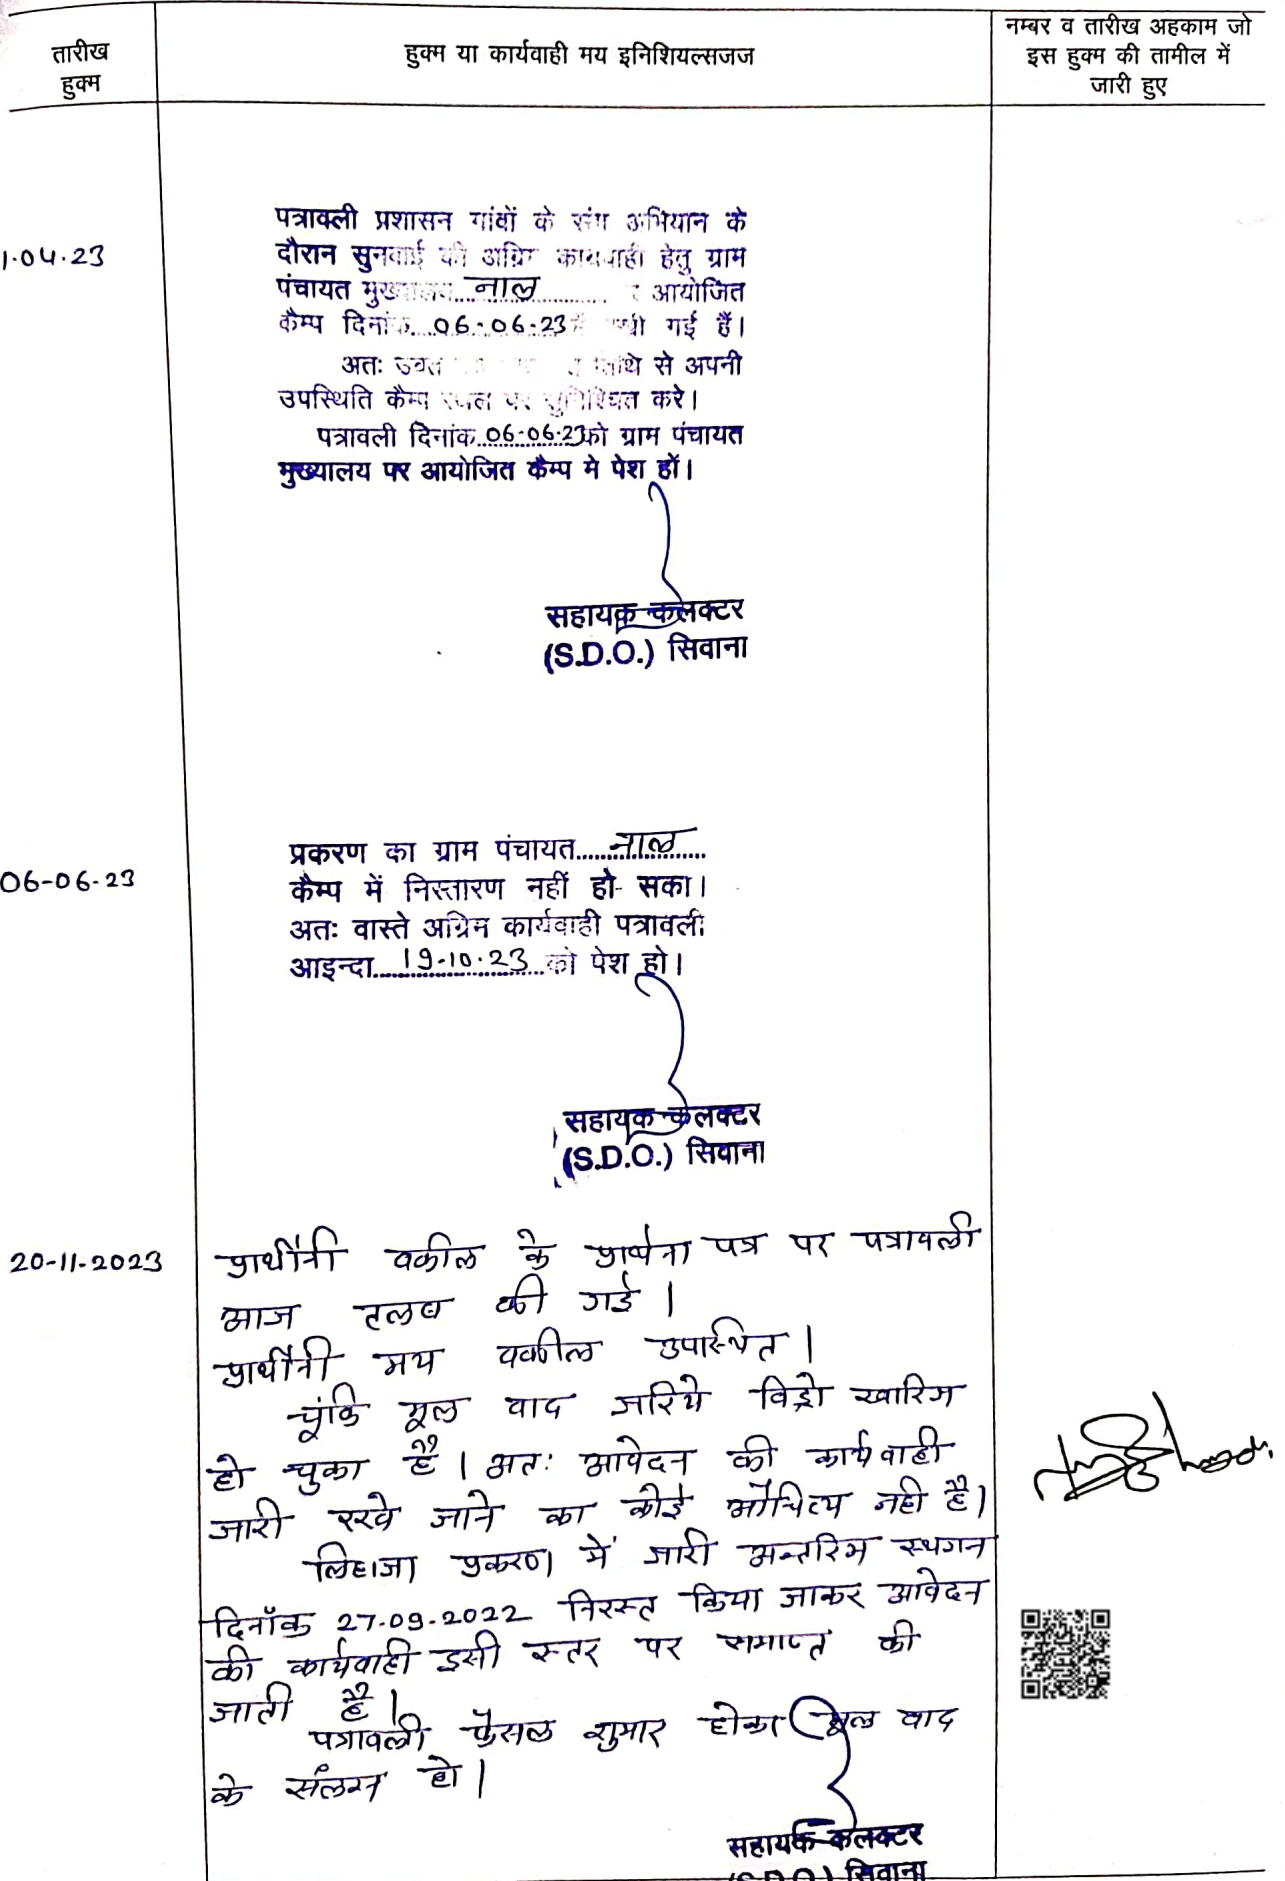 तारीख
हुक्म
हुक्म या कार्यवाही मय इनिशियल्सजज
नम्बर व तारीख अहकाम जो
इस हुक्म की तामील में
जारी हुए
1.04.23
पत्रावली प्रशासन गांवों के संग अभियान के
दौरान सुनवाई की अग्रिम कार्यवाही हेतु ग्राम
पंचायत मुख्यालय नाल पर आयोजित
कैम्प दिनांक 06-06-23 में रखी गई हैं।
अतः उक्त तिथि से अपनी
उपस्थिति कैम्प स्थल पर सुनिश्चित करे।
पत्रावली दिनांक 06-06-23 को ग्राम पंचायत
मुख्यालय पर आयोजित कैम्प मे पेश हों।
सहायक कलक्टर
(S.D.O.) सिवाना
06-06-23
प्रकरण का ग्राम पंचायत नाल
कैम्प में निस्तारण नहीं हो सका।
अतः वास्ते अग्रिम कार्यवाही पत्रावली
आइन्दा 19-10-23 को पेश हो।
सहायक कलक्टर
(S.D.O.) सिवाना
20-11-2023
प्रार्थीनी वकील के प्रार्थना पत्र पर पत्रावली
आज तलब की गई।
प्रार्थीनी मय वकील उपस्थित।
चूंकि मूल वाद जरिये विड्रो खारिज
हो चुका है। अतः आवेदन की कार्यवाही
जारी रखे जाने का कोई औचित्य नही है।
लिहाजा प्रकरण में जारी अन्तरिम स्थगन
दिनाँक 27-09-2022 निरस्त किया जाकर आवेदन
की कार्यवाही इसी स्तर पर समाप्त की
जाती है।
पत्रावली फैसल शुमार होकर मूल वाद
के संलग्न हो।
सहायक कलक्टर
(S.D.O.) सिवाना